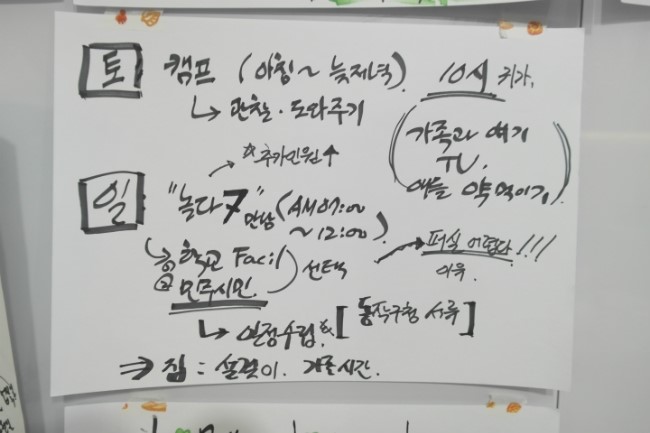 토 캠프 (아침~늦저녁) 10시 귀가.
↳ 관찰·도와주기
(가족과 얘기
TV.
애들 약 먹이기)
☆추가인원↑
일 "놀다7" 만남 (AM 07:00
~12:00)
① 학교 Facil
② 민주시민. 선택
→ 퍼실 어렵다!!!
이유.
↳ 일정수립. & [동작구청 서류]
⇒ 집 : 설겆이. 가족시간.